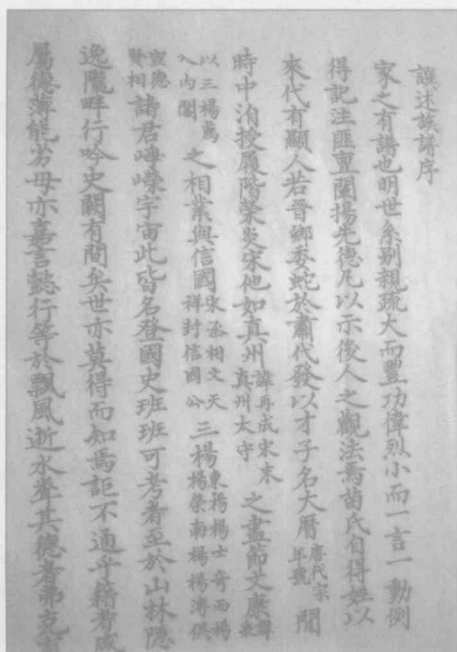 譔述族譜序
家之有譜也明世系别親疏大而豐功偉烈小而一言一動例
得記注匪亶闡揚先德凡以示後人之觀法焉苗氏自得姓以
來代有顯人若晉鄉委蛇於肅代發以才子名大曆唐代宗年號間
時中洎授履階榮炎宋他如真州諱再成宋末真州太守之盡節文康
以三楊為入内閣之相業與信國宋丞相文天祥封信國公三楊東楊楊士奇西楊楊榮南楊楊溥俱
宣德賢相諸君嶸宇宙此皆名登國史班班可考者至於山林隱
逸隴畔行吟史闕有間矣世亦莫得而知焉詎不適乎籍考成
屬德薄能劣毋亦嘉言懿行等於飄風逝水聲其德者弗克